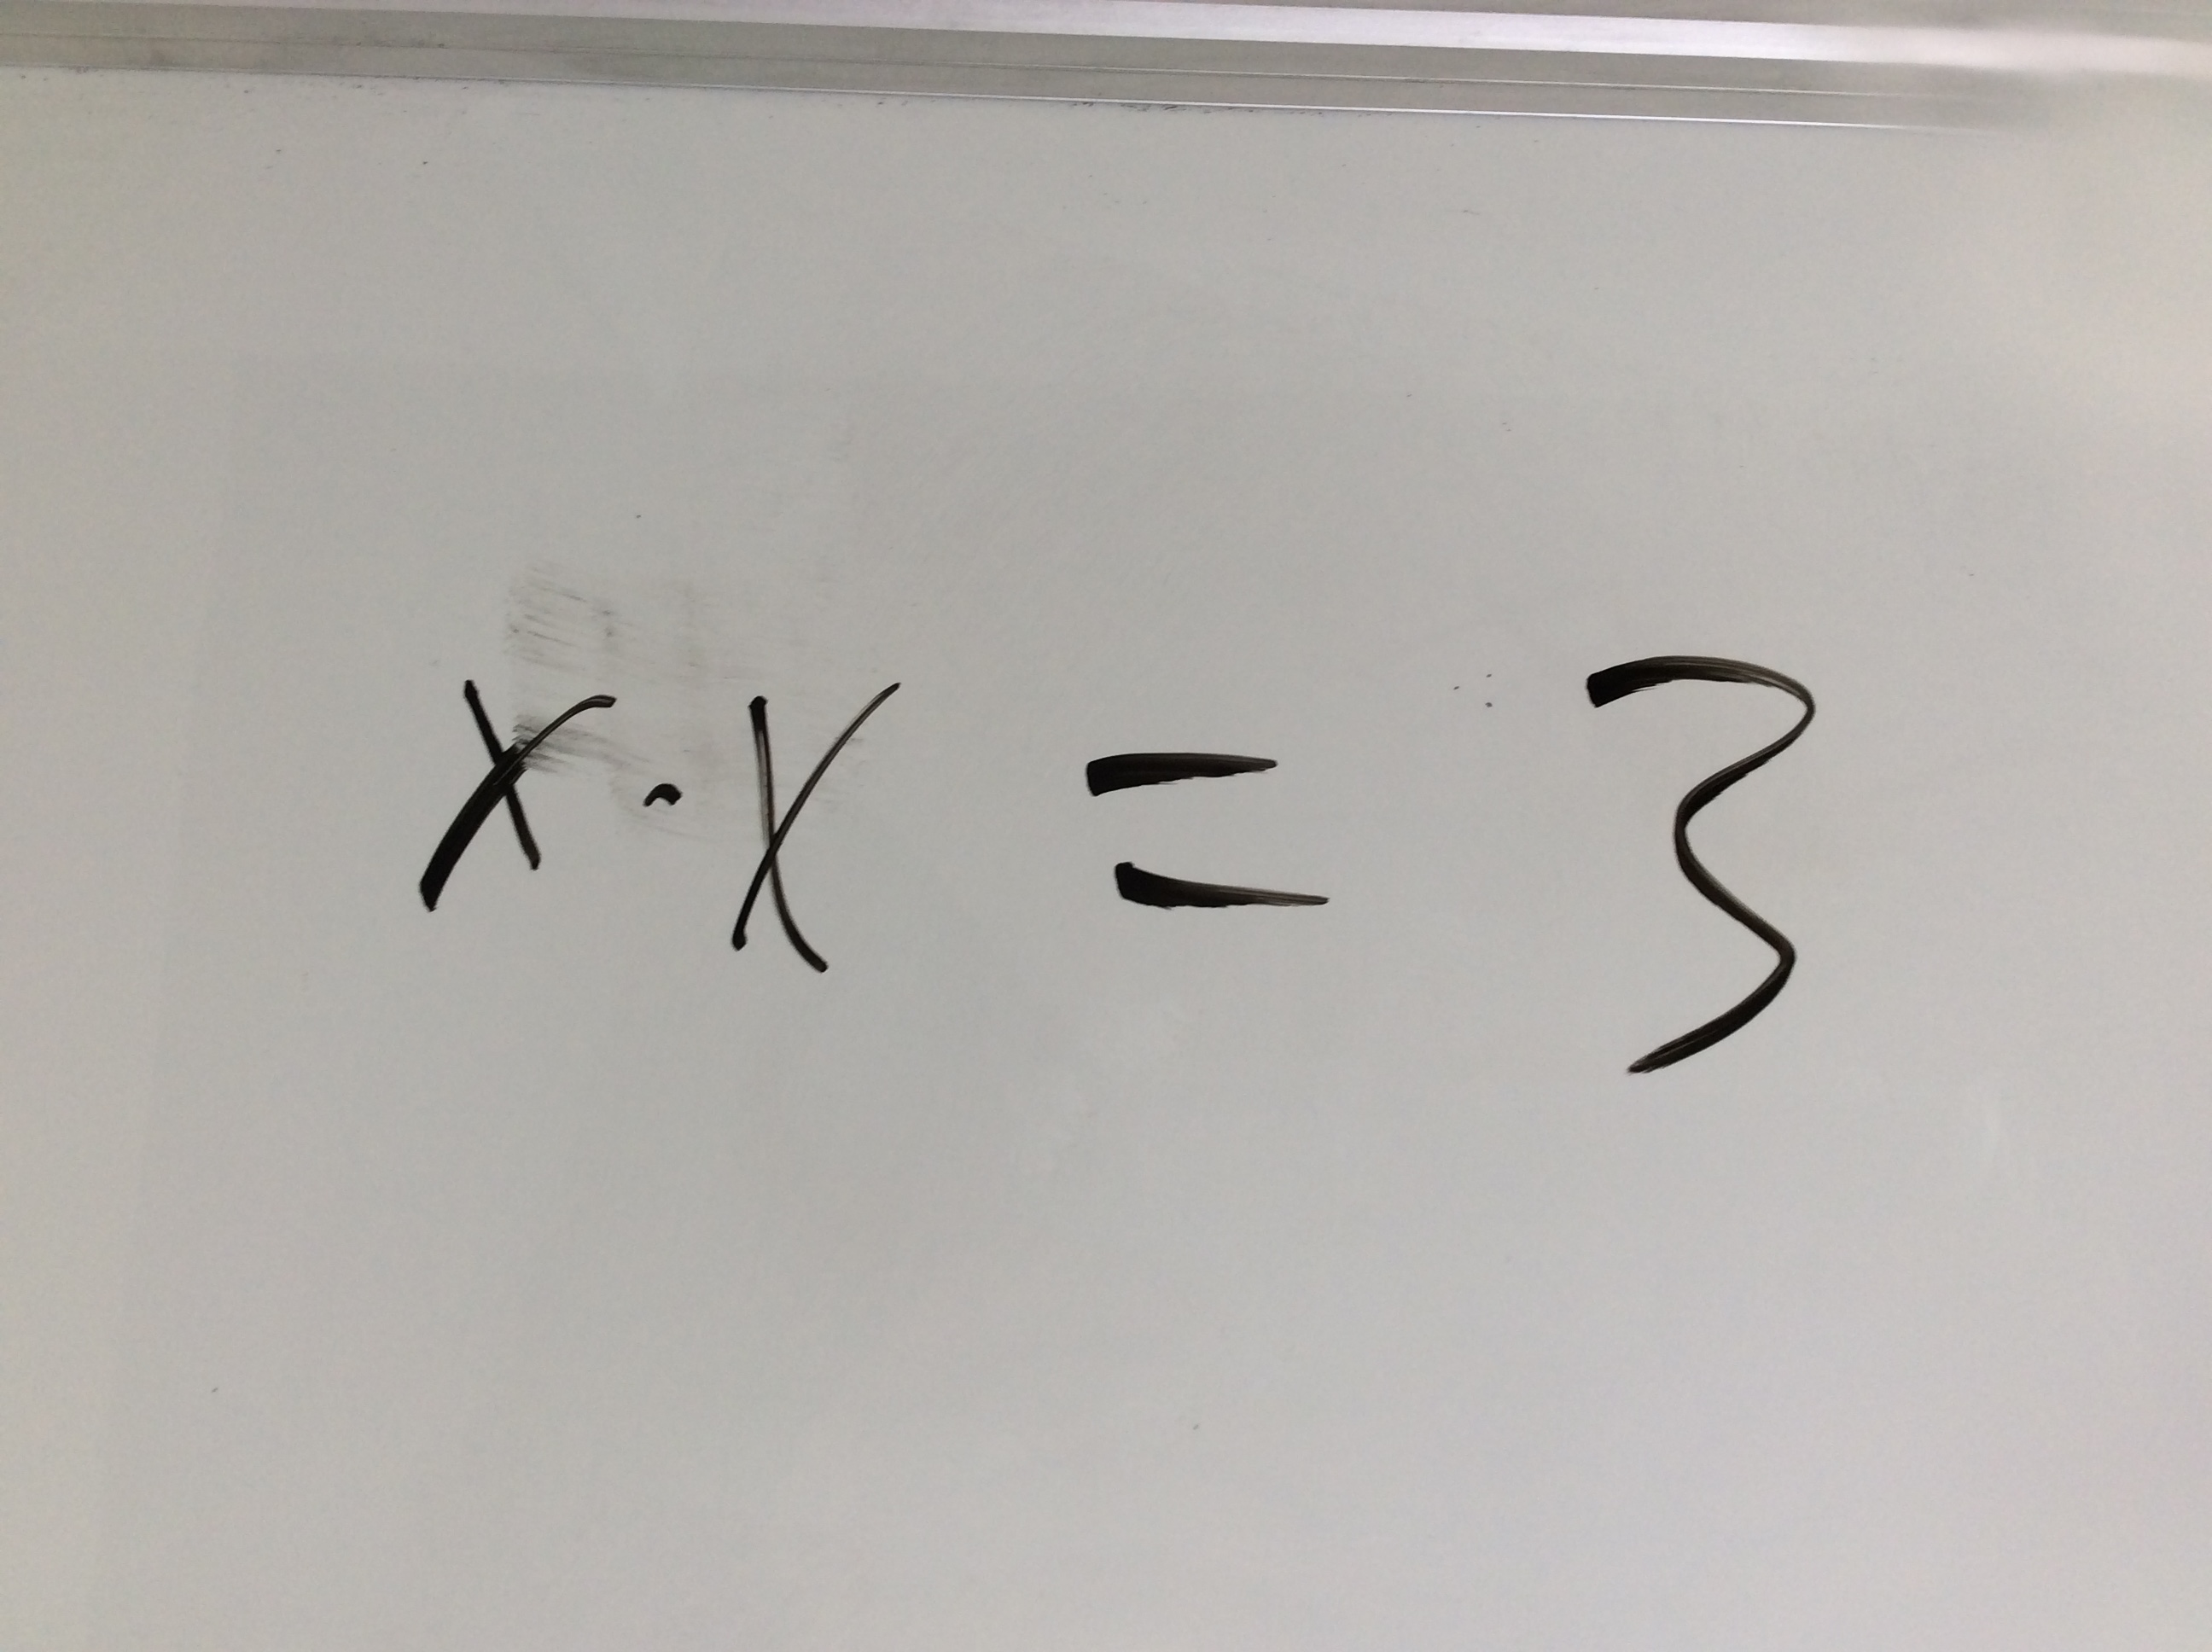 x · x = 3